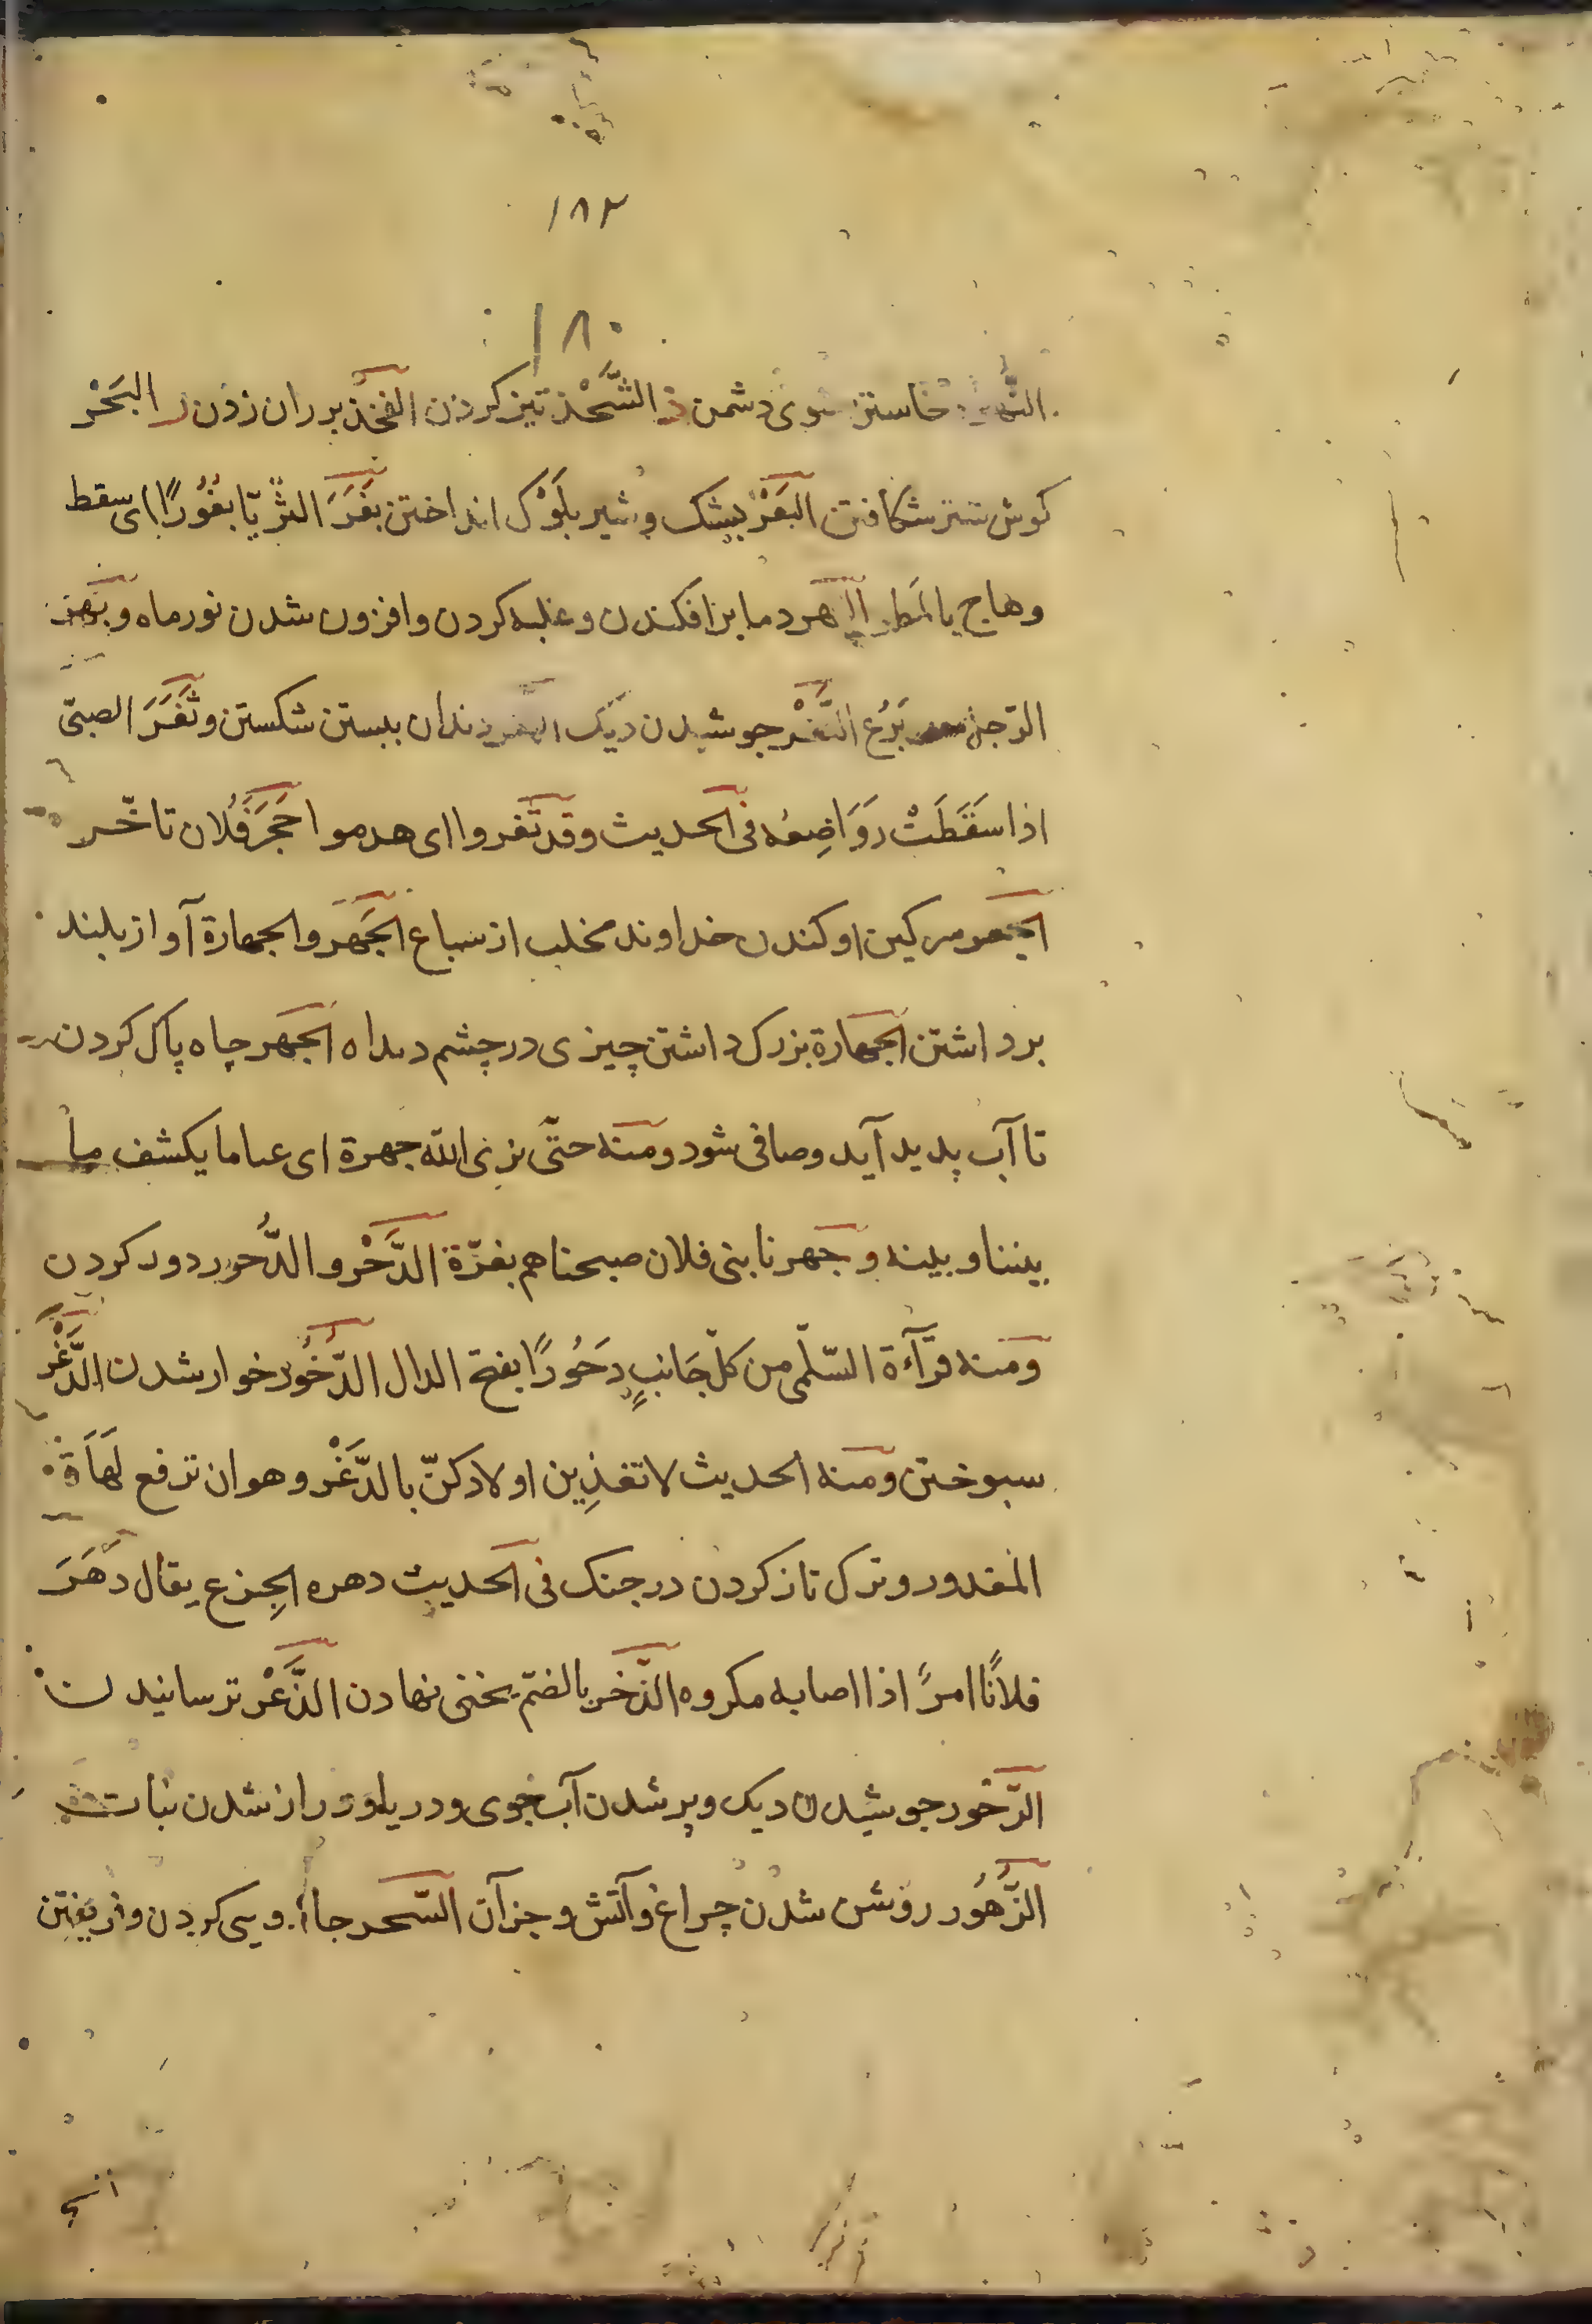 ۱۸۲
۱۸۰
خاستن سوی دشمن ذ الشَّحْذ تیز کردن الفخذ بر ران زدن ر البَحْر
کوش شتر شکافتن البَعْر بشک وشیر بلَوْک انداختن بَغَرَ الثُّریّا بُغُورًا ای سقط
وهاج بالمَطر دما برافکندن وغلبه کردن وافزون شدن نور ماه وبَهَر
الرّجل بَرُع التَّغْر جوشیدن دیک دندان ببستن شکستن وثَغَرَ الصبیّ
اذا سَقَطَتْ رَوَاضِعُه فی الحدیث وقد ثغروا ای هدموا جَحَرَ فُلان تاخّر
سرکین اوکندن خداوند مخلب از سباع الجَهر والجهارة آواز بلند
برداشتن الجهارة بزرک داشتن چیزی در چشم الجَهر چاه پاک کردن
تا آب پدید آید وصافی شود ومنه حتّی نری الله جهرة ای عیاما یکشف ما
بیننا وبینه وجهرنا بنی فلان صبحناهم بغرّة الدَّحْر والدُّحور دور کردن
ومنه قرآءة السّلمی من کلّ جَانبٍ دَحُورًا بفتح الدال الدّخُور خوار شدن الدَّغْر
سبوختن ومنه الحدیث لا تعذِبن اولادکنّ بالدَّغْر وهو ان ترفع لَهَاة
المغدور وترک تاز کردن در جنک فی الحدیث دهره الجزع یقال دَهَرَ
فلانًا امرً اذا اصابه مکروه الذّخر بالضمّ یخنی نهادن الذَّعْر ترسانیدن
الزّخور جوشیدن دیک وپر شدن آب جوی ودریا ودراز شدن نبات
الزُّهُور روشن شدن چراغ وآتش وجز آن السّحر جادویی کردن وفریفتن